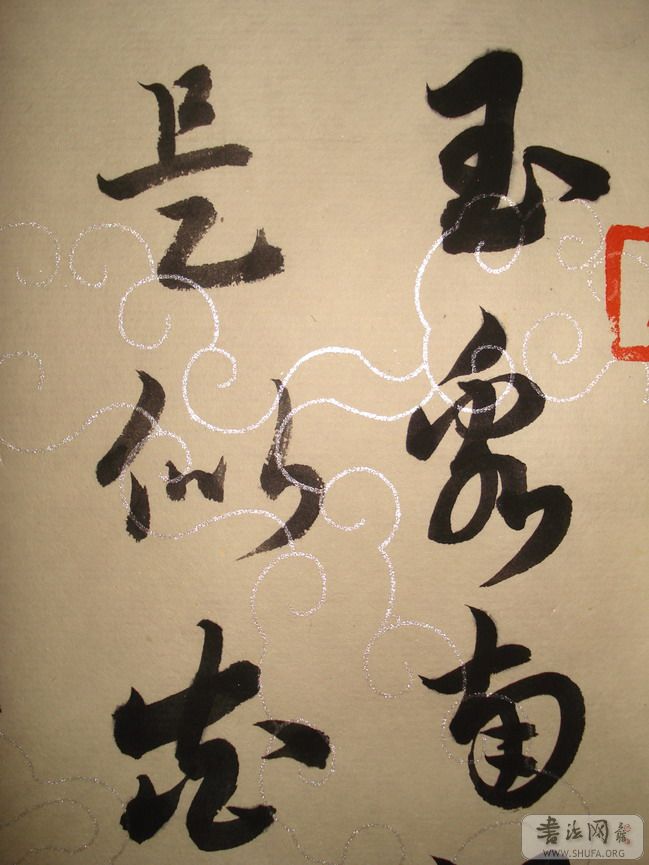 玉泉南
是似花
書法网
WWW.SHUFA.ORG